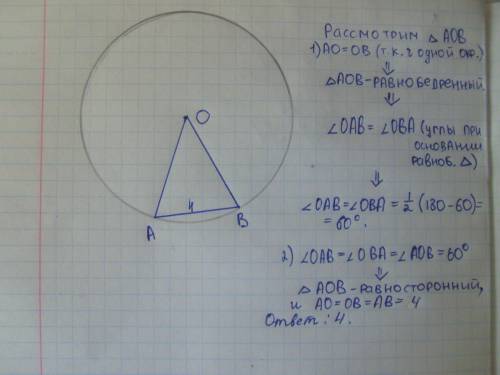 O
4
A
B
Рассмотрим △AOB
1) AO=OB (т.к. r одной окр.)
⇓
△AOB-равнобедренный
⇓
∠OAB=∠OBA (углы при
основании
равноб. △)
⇓
∠OAB=∠OBA=½(180-60)=
=60°.
2) ∠OAB=∠OBA=∠AOB=60°
⇓
△AOB-равносторонний,
и AO=OB=AB=4
Ответ: 4.